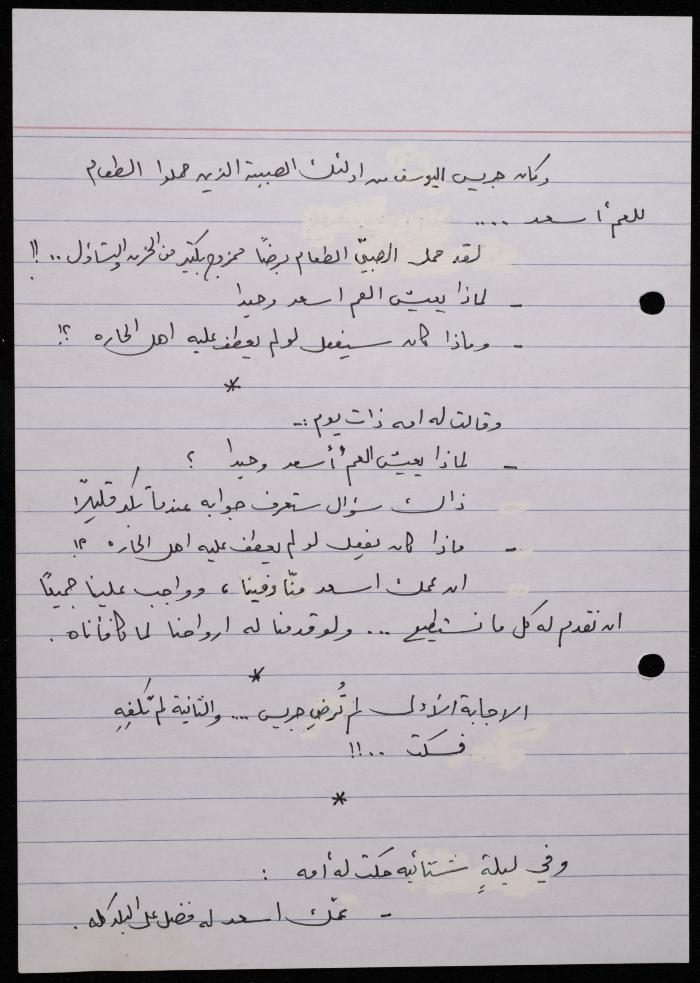 وكان جريس اليوسف من اولئك الصبية الذين حملوا الطعام
للعم أسعد ....
لقد حمل الصبيّ الطعام برضاً ممزوج بكثير من الحزن والتساؤل .. !!
- لماذا يعيش العم اسعد وحيدا
- وماذا كان سيفعل لو لم يعطف عليه اهل الحاره ؟!
*
وقالت له امه ذات يوم :-
- لماذا يعيش العم أسعد وحيدا ؟
ذاك سؤال ستعرف جوابه عندما تكبر قليلاً
- ماذا كان يفعل لو لم يعطف عليه اهل الحاره ؟!
ان عمك اسعد منّا وفينا ، وواجب علينا جميعًا
ان نقدم له كل ما نستطيع ... ولو قدمنا له ارواحنا لما كافأناه .
*
الاجابة الأولى لم تُرضِ جريس ... والثانية لم تكفِهِ
فسكت ..!!
*
وفي ليلةٍ شتائيه حكت له أمه :
- عمّك اسعد له فضل على البلد كله .